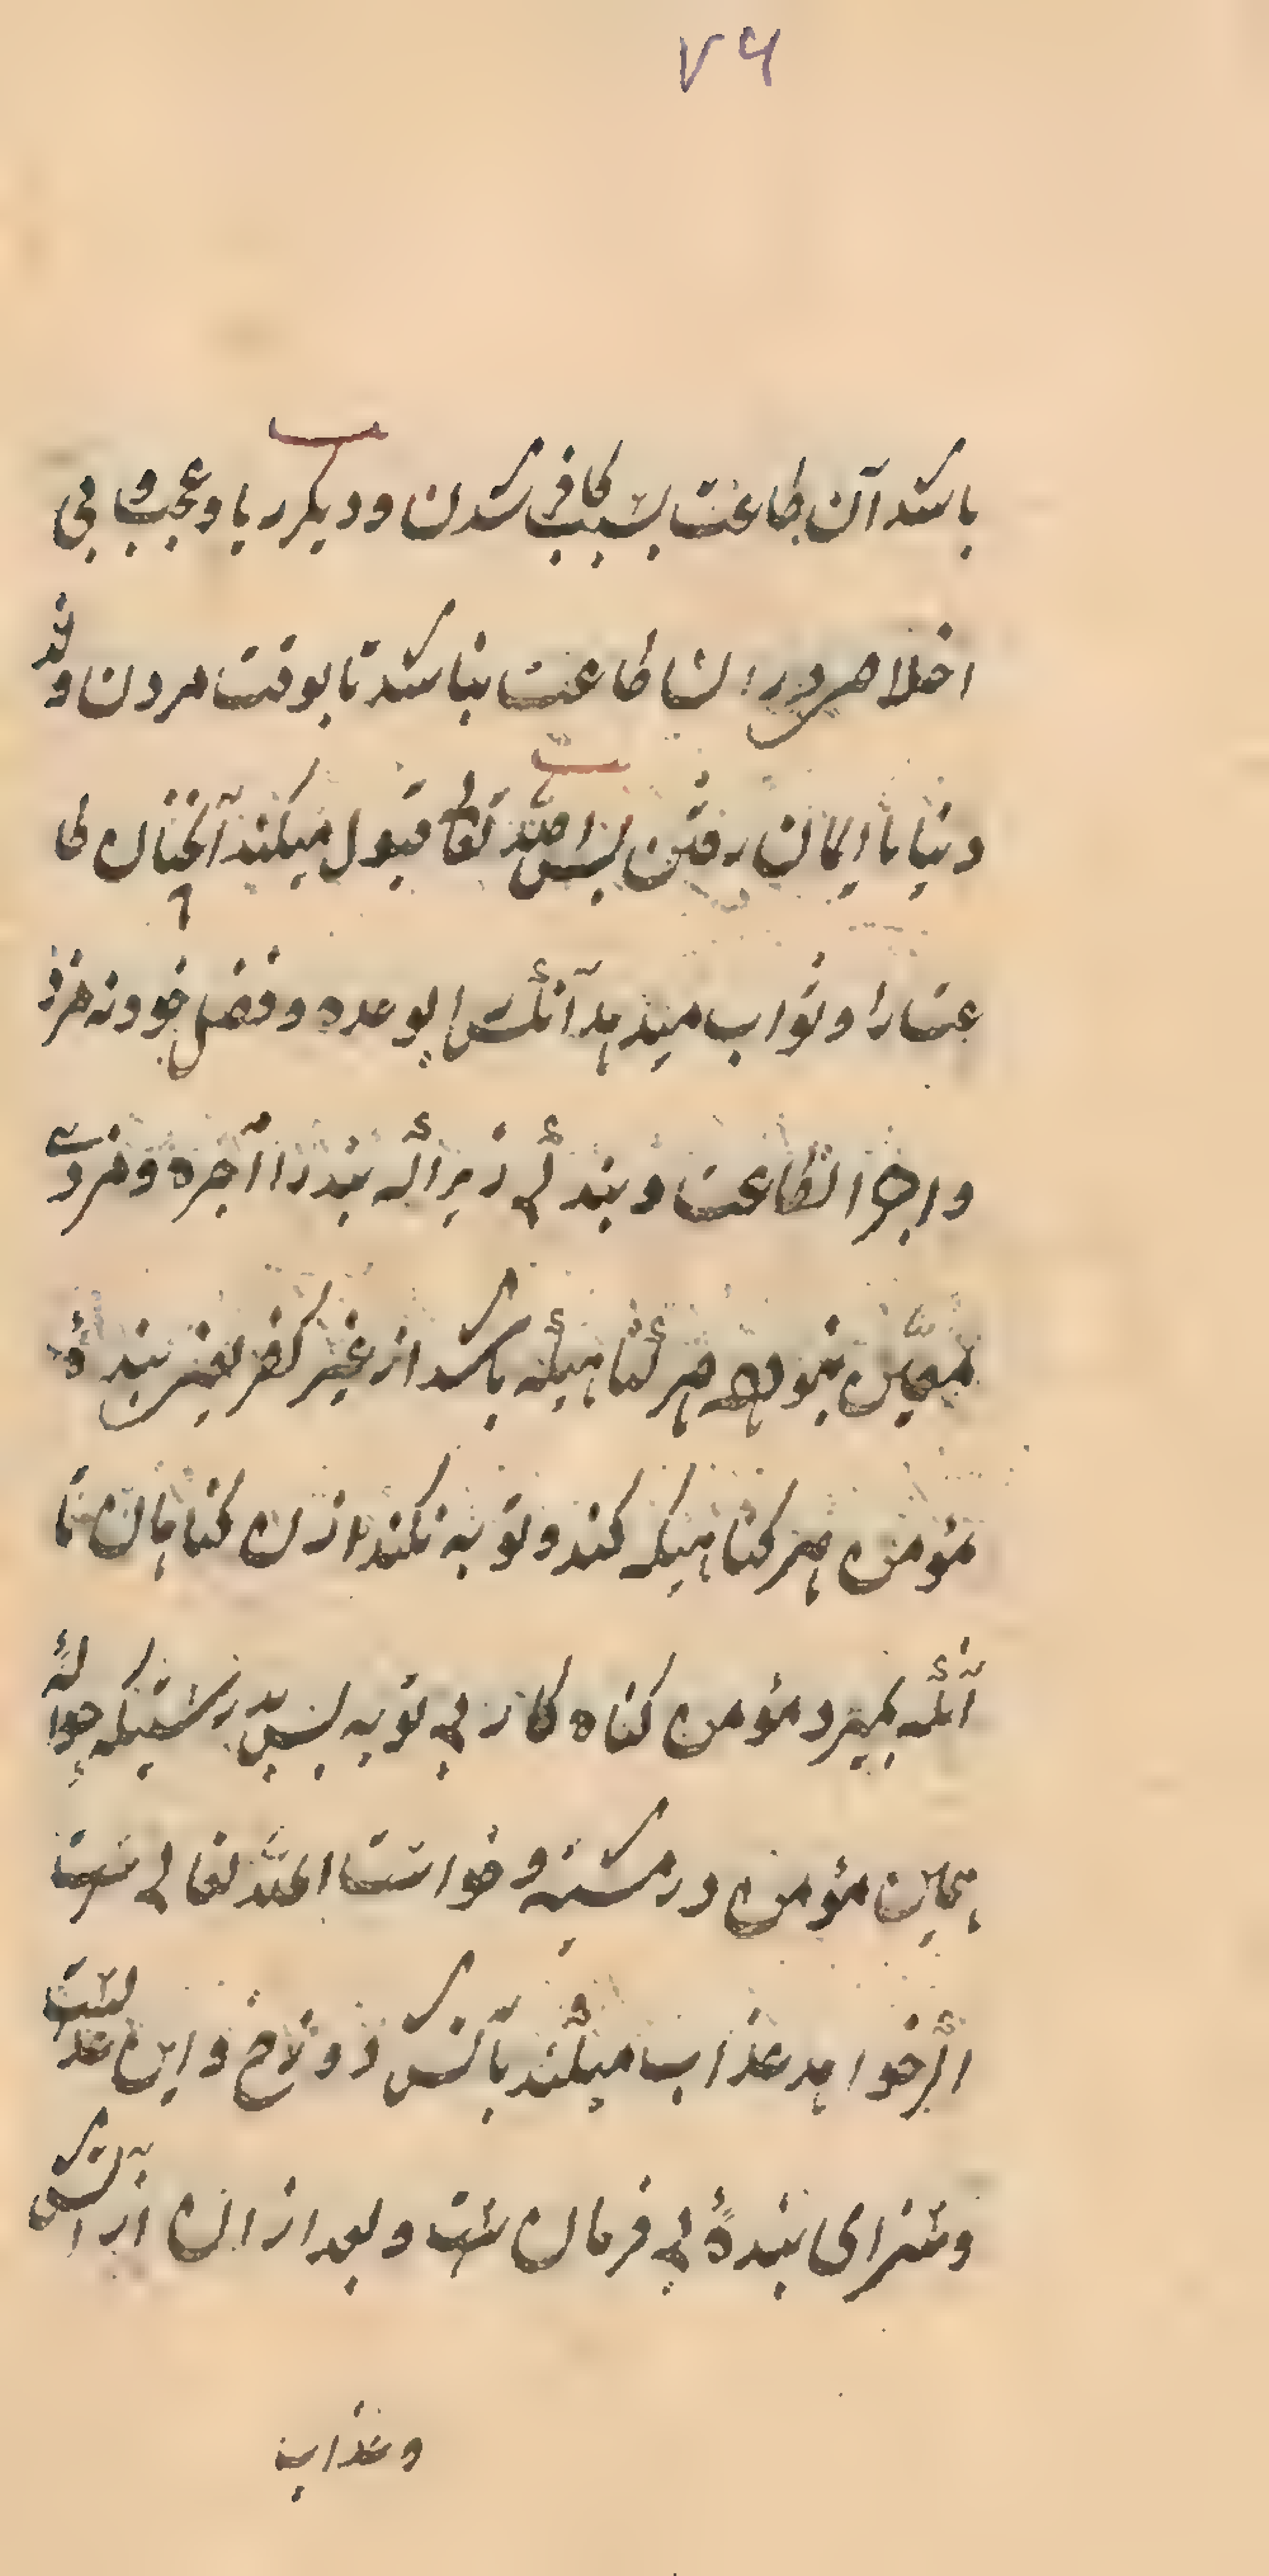 ۷۶
باشد آن طاعت بسبب کافر شدن و دیکر ریا و عجب و بی
اخلاص در ان طاعت نباشد تا بوقت مردن و شد
دنیا با ایمان رفتن پس الله تعالی قبول میکند آنچنان طا
عتا را و ثواب میدهد آنکس را بوعده و فضل خود نه مزد
و اجرا طاعت و بندگی زیراکه بند را آجره و مزدے
معین نبود و هر گناهیکه باشد از غیر کفر یعنی بنده ٔ
مؤمن هر گناهیکه کند و توبه نکند از ن گناهان تا
آنکه بمیرد مؤمن کناه کار بی توبه پس بدرستیکه حواله
همین مؤمن در مشیه و خواست الله تعالی ست
اگر خواهد عذاب میکند بآتش دوزخ و این عدلست
و سزای بندهٔ بی فرمان ست و بعد از ان از آتش
وعذاب